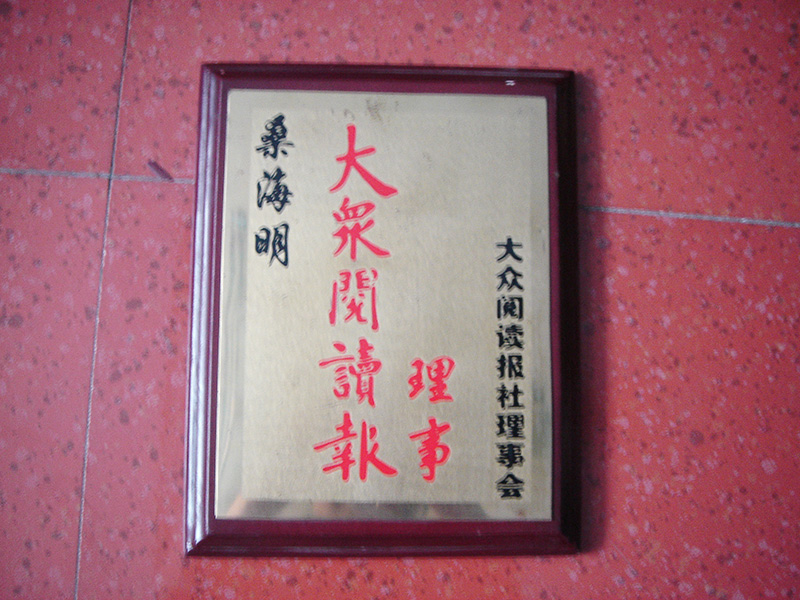 桑海明
大衆閱讀報
理事
大众阅读报社理事会